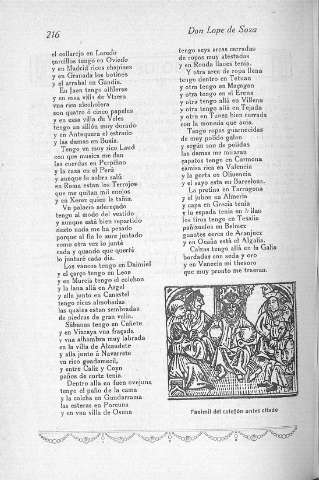 216
Don Lope de Sosa
el collarejo en Laredo
zarcillos tengo en Oviedo
y en Madrid ricos chapines
y en Granada los botines
y el arrabal en Gandía.
En Jaen tengo alfileres
y en esa villa de Vizera
una rica alcoholera
son quatro ó cinco papeles
y en esa villa de Veles
tengo un sillón muy dorado
y en Antequera el estrado
y las damas en Busía.
Tengo un muy rico Laud
con que musica me dan
las cuerdas en Perpiñan
y la caxa en el Perú
y aunque le sobra salú
en Roma estan los Terrojos
que me quitan mil enojos
y en Xerez quien le tañía.
Un palacio aderezado
tengo al modo del vestido
y aunque está bien repartido
nada me ha pesado
porque al fin lo anre juntado
como otra vez lo juntá
cada y quando que querrá
lo juntaré cada día.
Los vancos tengo en Daimiel
y el çarço tengo en Leon
y en Murcia tengo el colchon
y la lana allá en Argel
y allá junto en Canastel
tengo ricas almohadas
las quales estan sembradas
de piedras de gran valía.
Sábanas tengo en Cañete
y en Vizcaya una fraçada
y una alhambra muy labrada
en la villa de Alcaudete
y allá junto á Navarrete
un rico guadamacil,
y entre Caliz y Coyn
paños de corte tenía.
Dentro allá en fuen ovejuna
tengo el paño de la cama
y la colcha en Guadarrama
las esteras en Porcuna
y en una villa de Osuna
tengo seys arcas cerradas
de ropas muy alhajadas
y en Ronda llaves tenía.
Y otra arca de ropa llena
tengo dentro en Tetuan
y otra tengo en Mazagan
y otra tengo en el Erena
y otra tengo allá en Villena
y otra tengo allá en Tejada
y otra en Tunez bien cerrada
con la moneda que avía.
Tengo ropas guarnecidas
de muy polido galan
y segun son de polidas
las damas me miraran
zapatos tengo en Carmona
camisa rica en Valencia
y la gorra en Olivencia
y el sayo esta en Barcelona.
La pretina en Tarragona
y el jubon en Almeria
y capa en Grecia tenía
e la espada tenia en Milan
los tiros tengo en Tesalia
pañizuelos en Belmez
guantes cerca de Aranjuez
y en Ocaña está el Algalia.
Calças tengo allá en la Galia
bordadas con seda y oro
y en Venecia mi thesoro
que muy presto me traeran.
Facsimil del colofón antes citado